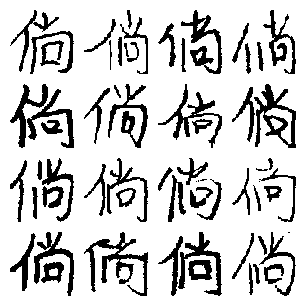 倘倘倘倘
倘倘倘倘
倘倘倘倘
倘倘倘倘